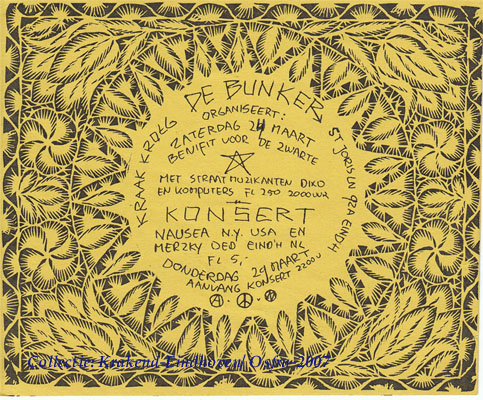 KRAAK KROEG
DE BUNKER
ST JORISLN
EINDH
ORGANISEERT:
ZATERDAG 24 MAART
BENIFIT VOOR DE ZWARTE
MET STRAATMUZIKANTEN DIKO
EN KOMPUTERS FL 2,50 2000 UUR
EN
KONSERT
NAUSEA N.Y. USA EN
MERZKY OED EIND'H NL
FL 5,-
DONDERDAG 29 MAART
AANVANG KONSERT 2200U
Collectie: Krakend-Eindhoven/ 2007